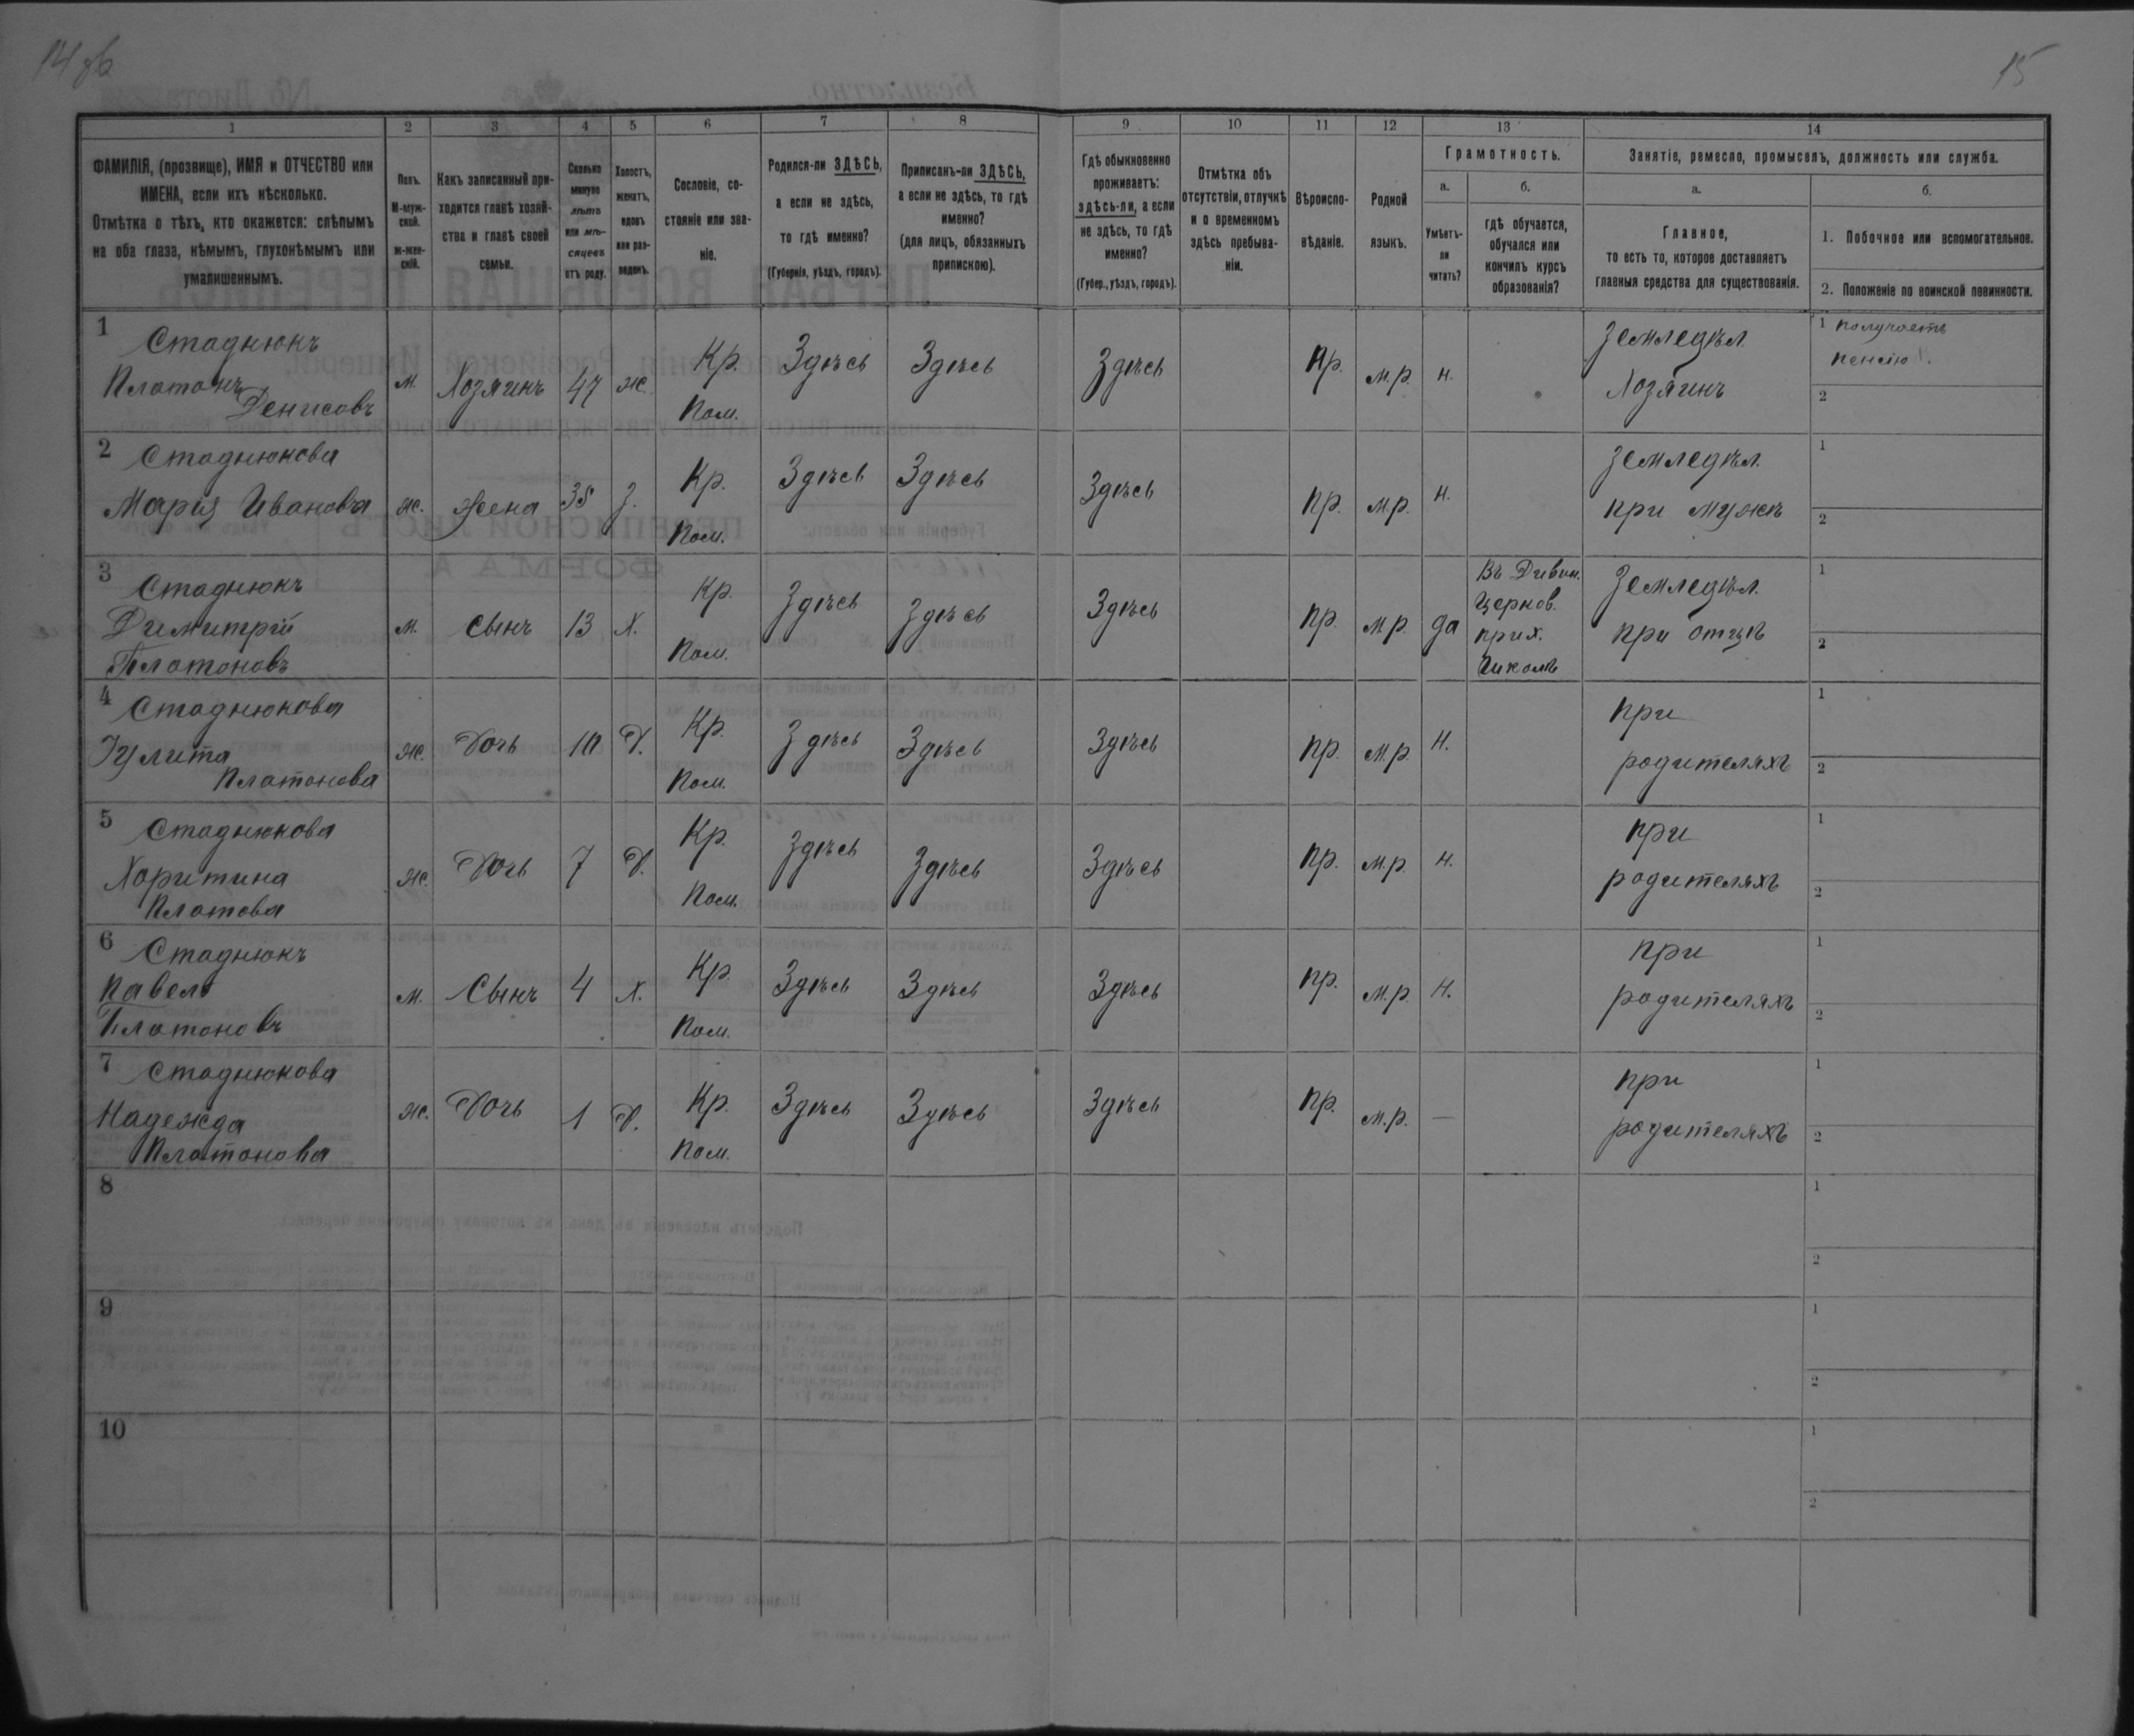 14 об
15
1 2 3 4 5 6 7 8 9 10 11 12 13 14
ФАМИЛІЯ, (прозвище), ИМЯ и ОТЧЕСТВО или
ИМЕНА, если ихъ нѣсколько.
Отмѣтка о тѣхъ, кто окажется: слѣпымъ
на оба глаза, нѣмымъ, глухонѣмымъ или
умалишеннымъ.
Полъ.
М-муж-
ской.
ж-жен-
скій.
Какъ записанный при-
ходится главѣ хозяй-
ства и главѣ своей
семьи.
Сколько
минуло
лѣтъ
или мѣ-
сяцевъ
отъ роду.
Холостъ,
женатъ,
вдовъ
или раз-
веденъ.
Сословіе, со-
стояніе или зва-
ніе.
Родился-ли ЗДѢСЬ,
а если не здѣсь,
то гдѣ именно?
(Губернія, уѣздъ, городъ).
Приписанъ-ли ЗДѢСЬ,
а если не здѣсь, то гдѣ
именно?
(для лицъ, обязанныхъ
припискою).
Гдѣ обыкновенно
проживаетъ:
здѣсь-ли, а если
не здѣсь, то гдѣ
именно?
(Губер., уѣздъ, городъ).
Отмѣтка объ
отсутствіи, отлучкѣ
и о временномъ
здѣсь пребыва-
ніи.
Вѣроиспо-
вѣданіе.
Родной
языкъ.
Грамотность.
а.
Умѣетъ-
ли
читать?
б.
гдѣ обучается,
обучался или
кончилъ курсъ
образованія?
Занятіе, ремесло, промыселъ, должность или служба.
а.
Главное,
то есть то, которое доставляетъ
главныя средства для существованія.
б.
1. Побочное или вспомогательное.
2. Положеніе по воинской повинности.
1 Стаднюкъ
Платонъ
Денисовъ
м. Хозяинъ 47 ж.
Кр.
Пом.
Здѣсь Здѣсь Здѣсь Пр. м.р. н.
Земледѣл.
Хозяинъ
1 получаетъ
пенсію
2
2 Стаднюкова
Марія Иванова
ж. жена 38 З.
Кр.
Пом.
Здѣсь Здѣсь Здѣсь Пр. м.р. н.
Земледѣл.
при мужѣ
1
2
3 Стаднюкъ
Димитрій
Платоновъ
м. Сынъ 13 Х.
Кр.
Пом.
Здѣсь Здѣсь Здѣсь Пр. м.р. да
Въ Дивин.
Церков.
прих.
Школѣ
Земледѣл.
при отцѣ
1
2
4 Стаднюкова
Іулита
Платонова
ж. Дочь 10 Д.
Кр.
Пом.
Здѣсь Здѣсь Здѣсь Пр. м.р. н.
при
родителяхъ
1
2
5 Стаднюкова
Харитина
Платова
ж. Дочь 7 Д.
Кр.
Пом.
Здѣсь Здѣсь Здѣсь Пр. м.р. н.
при
родителяхъ
1
2
6 Стаднюкъ
Павелъ
Платоновъ
м. Сынъ 4 Х.
Кр.
Пом.
Здѣсь Здѣсь Здѣсь Пр. м.р. н.
при
родителяхъ
1
2
7 Стаднюкова
Надежда
Платонова
ж. Дочь 1 Д.
Кр.
Пом.
Здѣсь Здѣсь Здѣсь Пр. м.р. —
при
родителяхъ
1
2
8
1
2
9
1
2
10
1
2